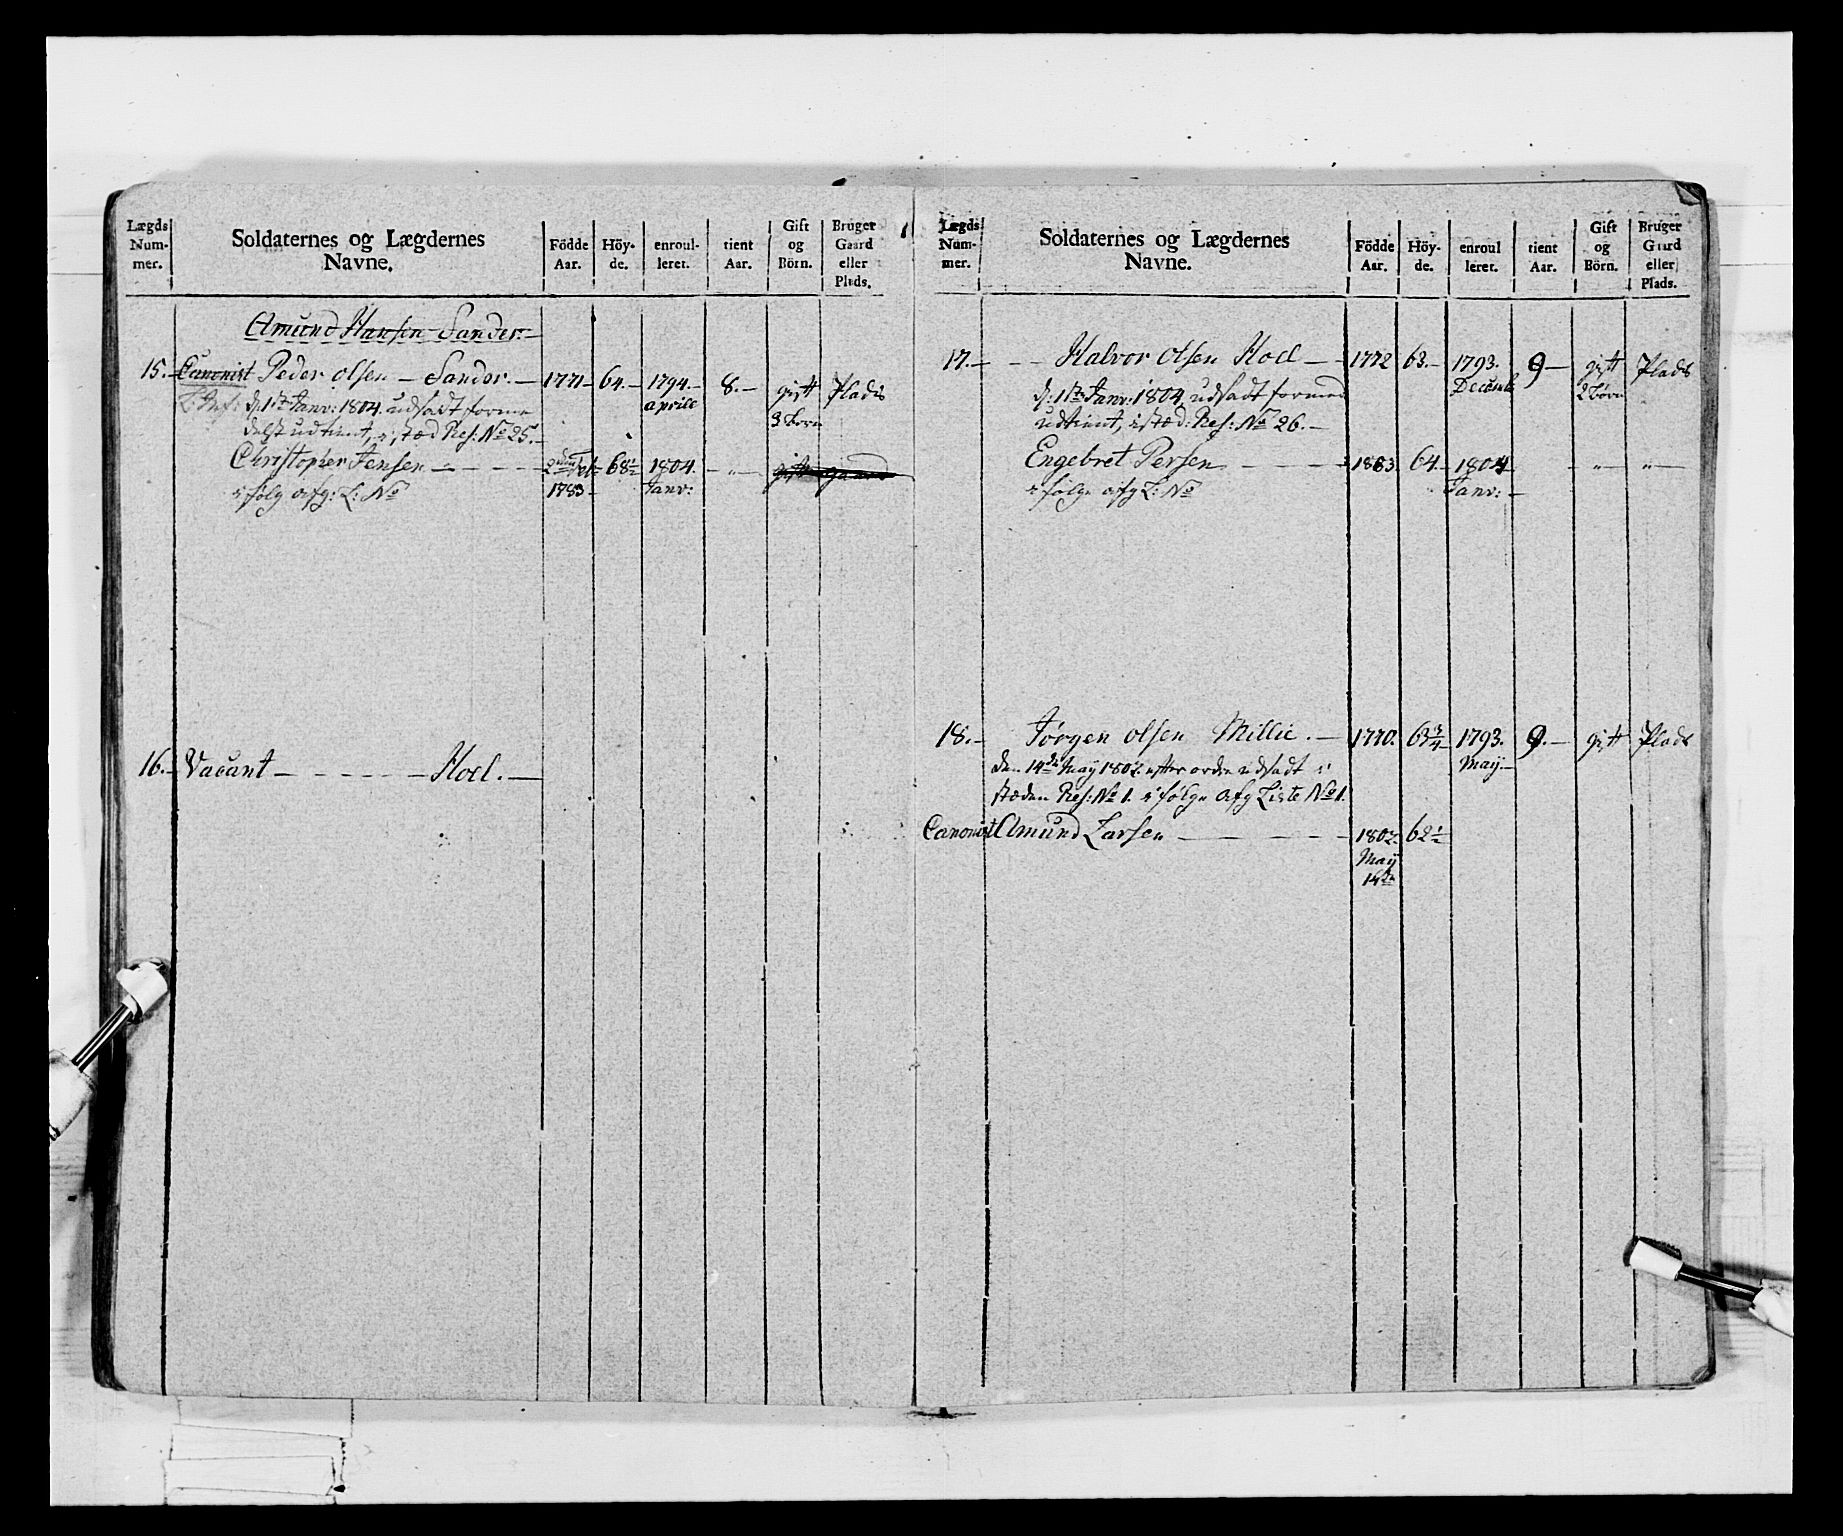 Lægds Num- mer.
Soldaternes og Lægdernes Navne.
Födde Aar.
Höy- de.
enroul- leret.
tient Aar.
Gift og Börn.
Bruger Gaard eller Plads.
Amund Hansen Sander
15. Canonist Peder Olsen – Sander. 1771 64. 1794. april 8. gift 3 børn Plads
d: 1te Janv: 1804 udsadt forme
delst udtient, i stæd Res: No 25.
Christopher Jensen 1783 68½ 1804. Janv: – " – gift gaard
i følg afg: L: No
16. Vacant – Hoel.
Lægds Num- mer.
Soldaternes og Lægdernes Navne.
Födde Aar.
Höy- de.
enroul leret.
tient Aar.
Gift og Börn.
Bruger Gaard eller Plads.
17. Halvor Olsen Hoel 1772 63. 1793. Decemb 9 gift 2 børn Plads
d: 1te Janv: 1804 udsadt formed
udtient, i stæd: Res: No 26.
Engebret Persen 1883 64 1804 Janv: – " – – " –
i følge afg L: No
18. Jørgen Olsen Millie. 1770. 63¾ 1793. May 9. gift Plads
den 14de May 1802 efter ordre udsadt i
stæden Res: No 1. i følge Afg Liste No 1.
Canonist Amund Larsen 1802 62½
May
14de